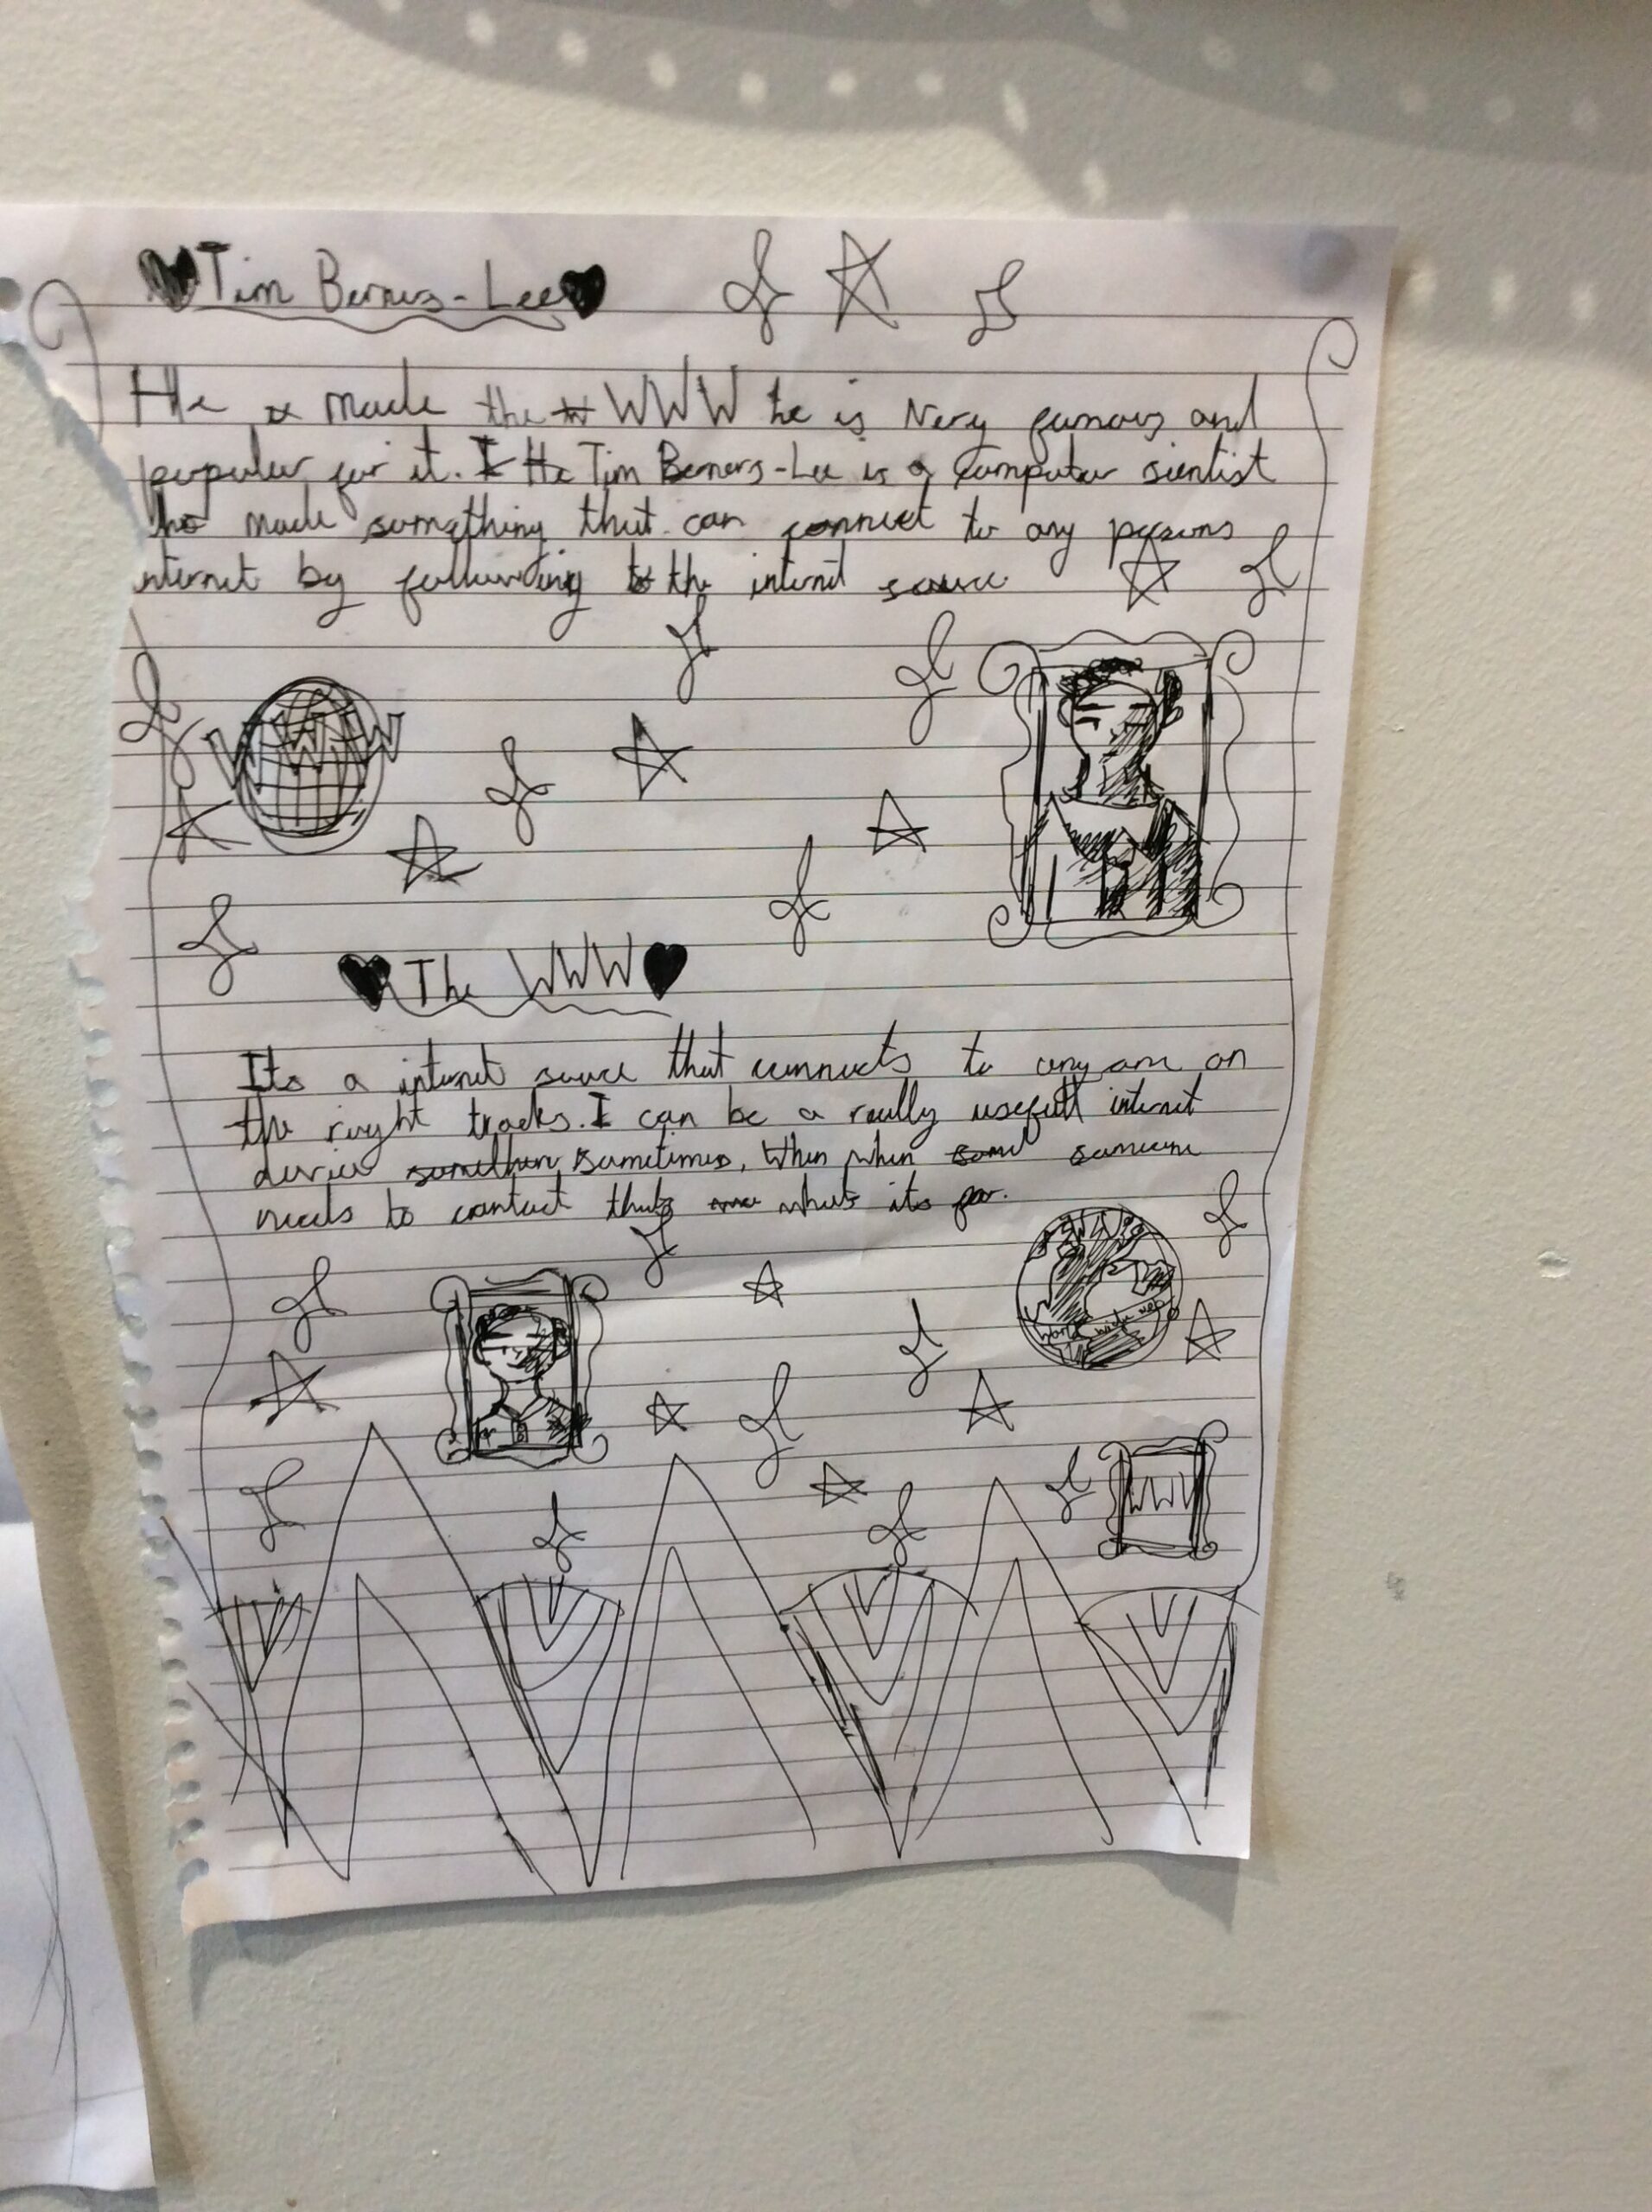 Tim Berners-Lee
He made the WWW he is Very famous and
populer for it. I He Tim Berners-Lee is a Computer sientist
who made something that can connect to any persons
internet by following to the internet source
WWW
The WWW
Its a internet source that connects to anyone on
the right tracks. I can be a really usefull internet
device sometimes, When when some someone
needs to contact thats whats its for.
World wide web
WWW